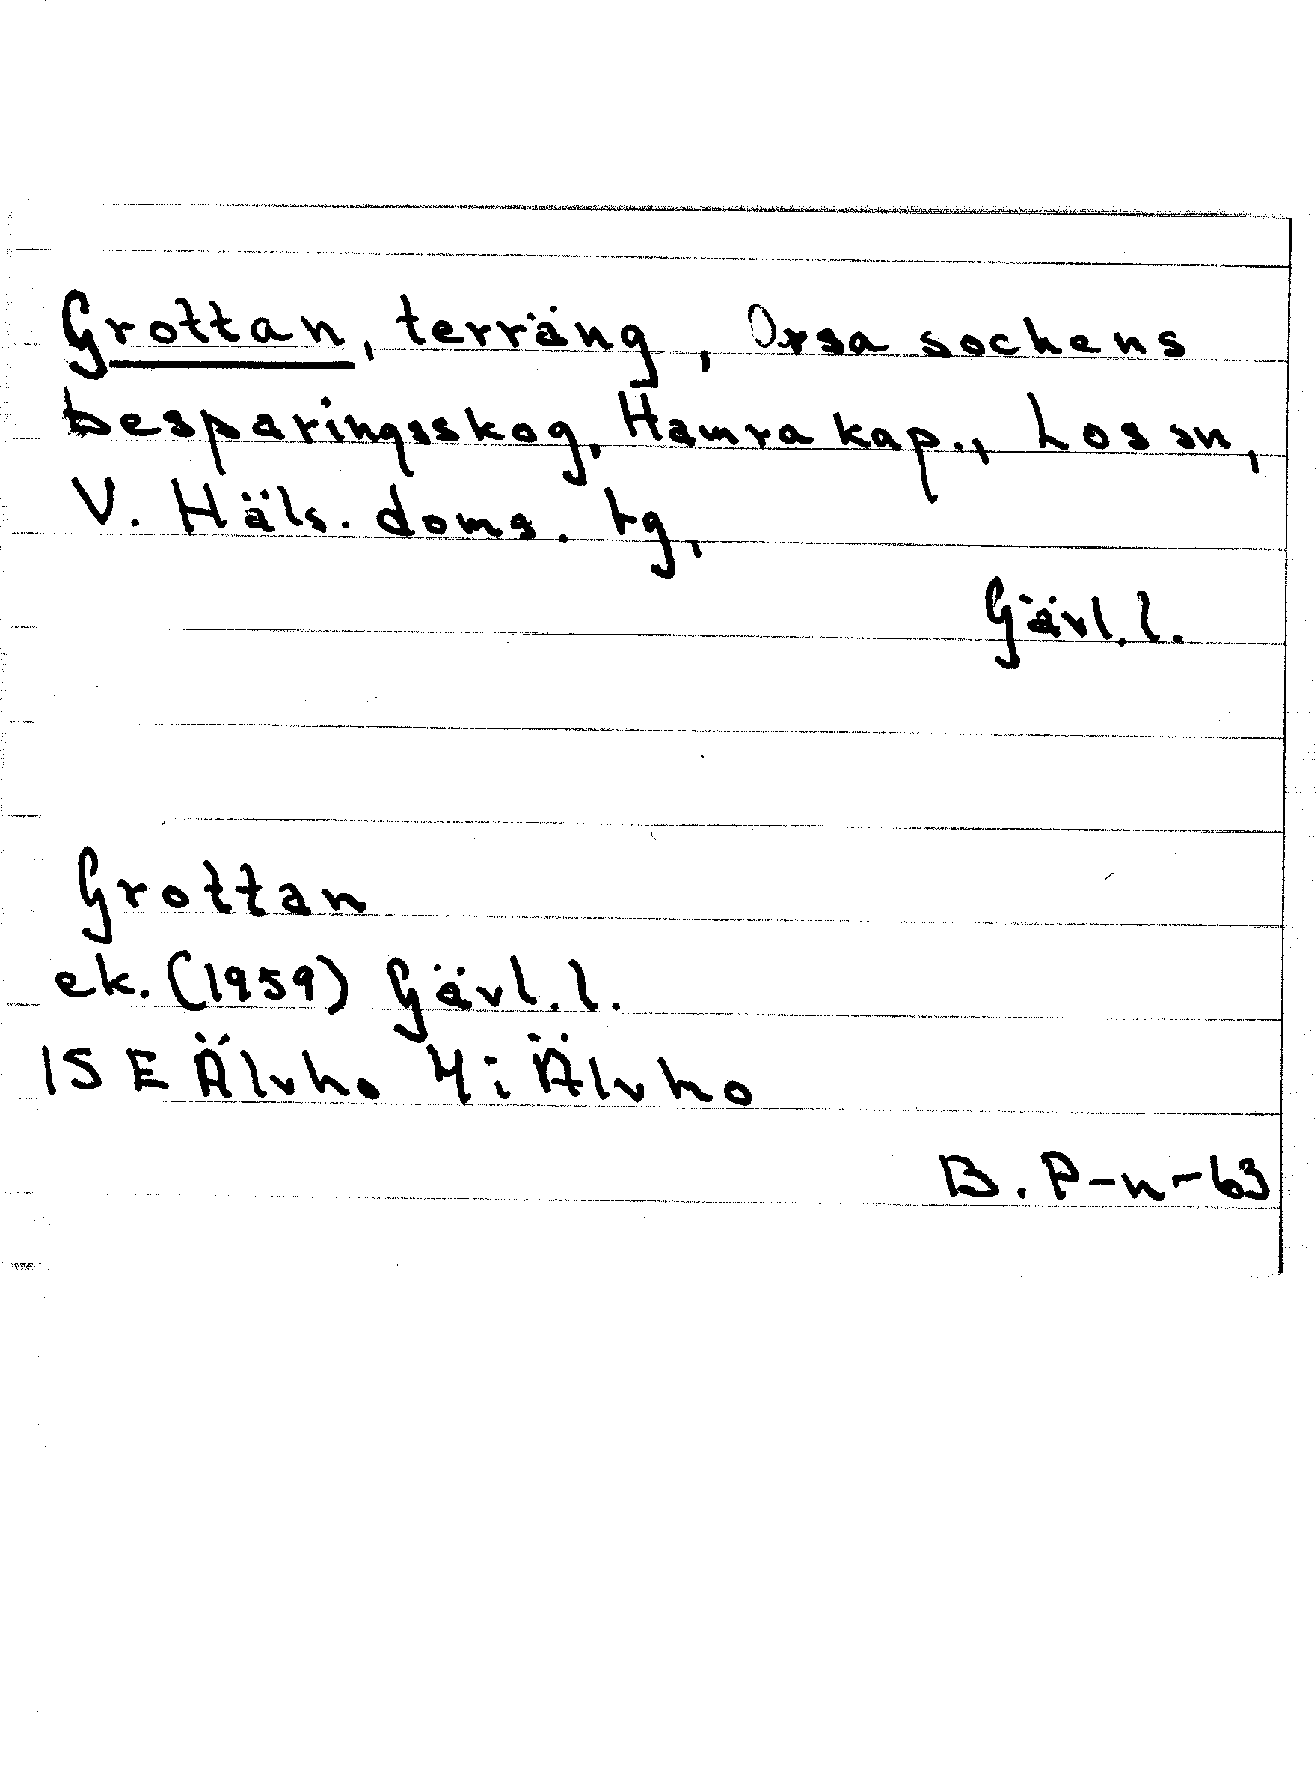 Grottan, terräng, Orsa sockens
besparingsskog, Hamra kap., Los sn,
V. Häls. doms. tg,
Gävl.l.
Grottan
ek. (1959) Gävl.l.
15 E Älvho 4i Älvho
B. P-n-63